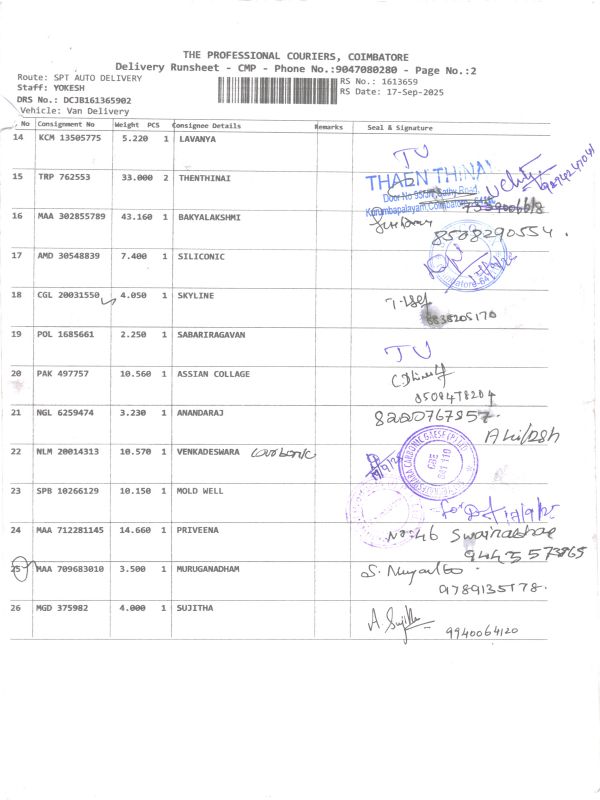 THE PROFESSIONAL COURIERS, COIMBATORE
Delivery Runsheet - CMP - Phone No.:9047080280 - Page No.:2
Route: SPT AUTO DELIVERY
Staff: YOKESH
DRS No.: DCJB161365902
Vehicle: Van Delivery
RS No.: 1613659
RS Date: 17-Sep-2025
No Consignment No Weight PCS Consignee Details Remarks Seal & Signature
14 KCM 13505775 5.220 1 LAVANYA
TU
15 TRP 762553 33.000 2 THENTHINAI
THAEN THINAI
Kurumbapalayam, Coimbatore
9894247041
16 MAA 302855789 43.160 1 BAKYALAKSHMI
8508290554.
17 AMD 30548839 7.400 1 SILICONIC
18 CGL 20031550 4.050 1 SKYLINE
19 POL 1685661 2.250 1 SABARIRAGAVAN
TU
20 PAK 497757 10.560 1 ASSIAN COLLAGE
21 NGL 6259474 3.230 1 ANANDARAJ
22 NLM 20014313 10.570 1 VENKADESWARA carbonic
23 SPB 10266129 10.150 1 MOLD WELL
For 17/9/25
24 MAA 712281145 14.660 1 PRIVEENA
No: 46
94435 73865
25 MAA 709683010 3.500 1 MURUGANADHAM
9789135178.
26 MGD 375982 4.000 1 SUJITHA
A. Sujitha
9940064120